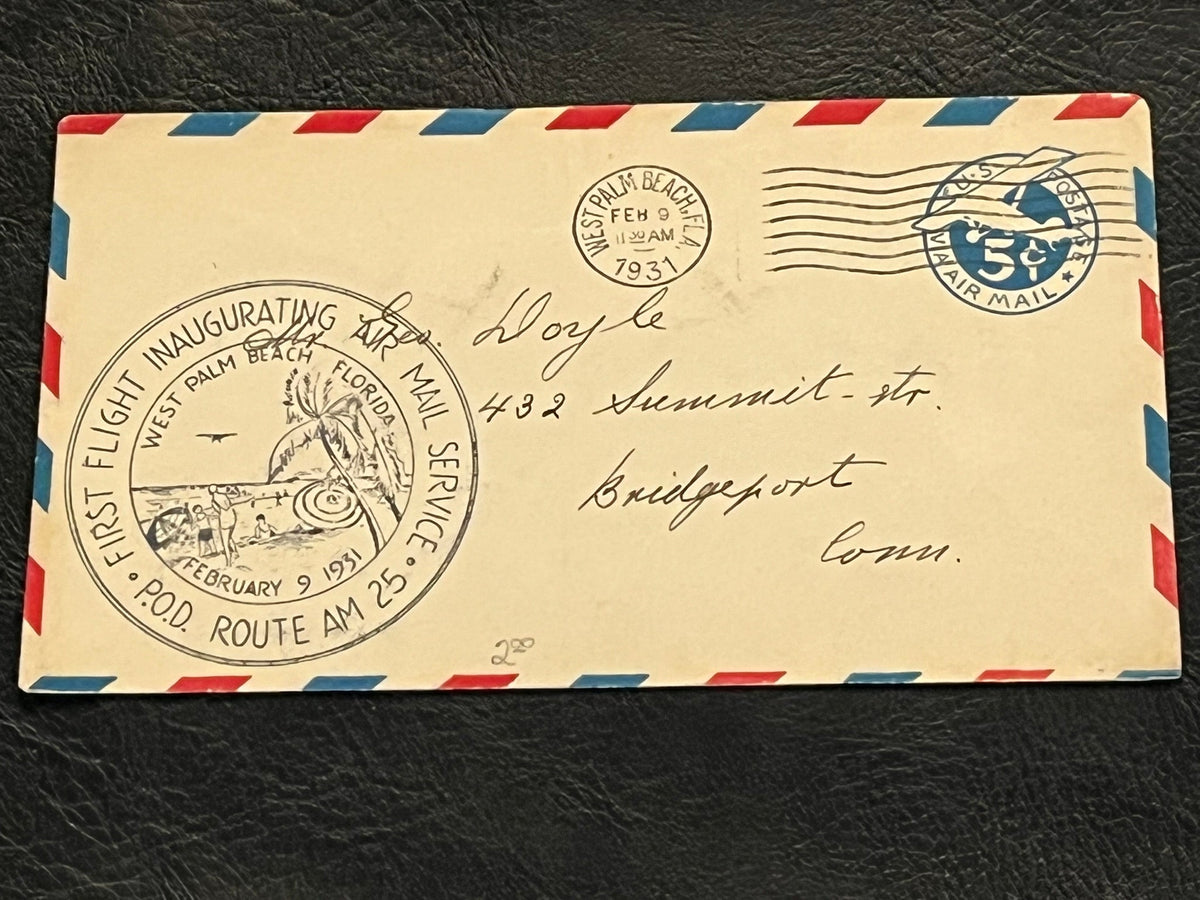 WEST PALM BEACH, FLA.
FEB 9
11 30 AM
1931
U.S. POSTAGE
5¢
VIA AIR MAIL
FIRST FLIGHT INAUGURATING AIR MAIL SERVICE
WEST PALM BEACH FLORIDA
FEBRUARY 9 1931
P.O.D. ROUTE AM 25
Mr Geo. Doyle
432 Summit-str.
Bridgeport
Conn.
2.00